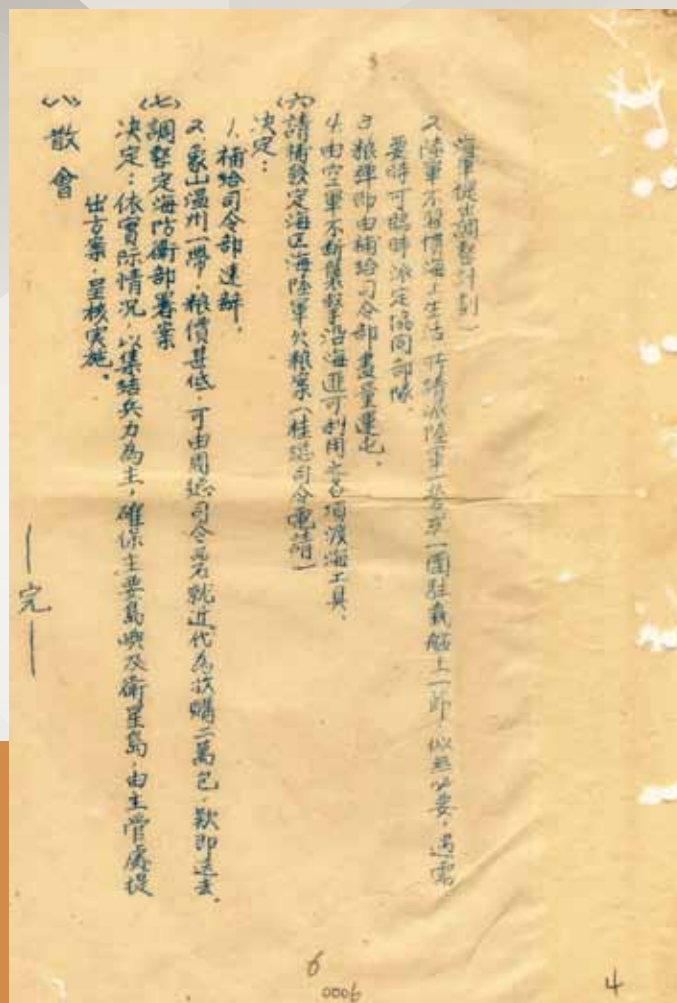 海軍提出調整計劃)
2.陸軍不習慣海上生活,所請派陸軍一營或一團駐義船上一節,似無必要,遇需
要時可臨時派定協同部隊。
3.粮彈即由補給司令部盡量運屯。
4.由空軍不斷襲擊沿海匪可利用之各項渡海工具。
(六)請補發定海区海陸軍欠粮案(桂總司令電請)
决定:
1.補給司令部速辦。
2.象山溫州一帶,粮價甚低,可由周總司令就近代為收購二萬包,款即送去。
(七)調整定海防衛部署案
決定:依實际情况,以集結兵力為主,確保主要島嶼及衛星島,由主管處提
出方案,呈核実施。
(八)散會
—完—
6
0006
4